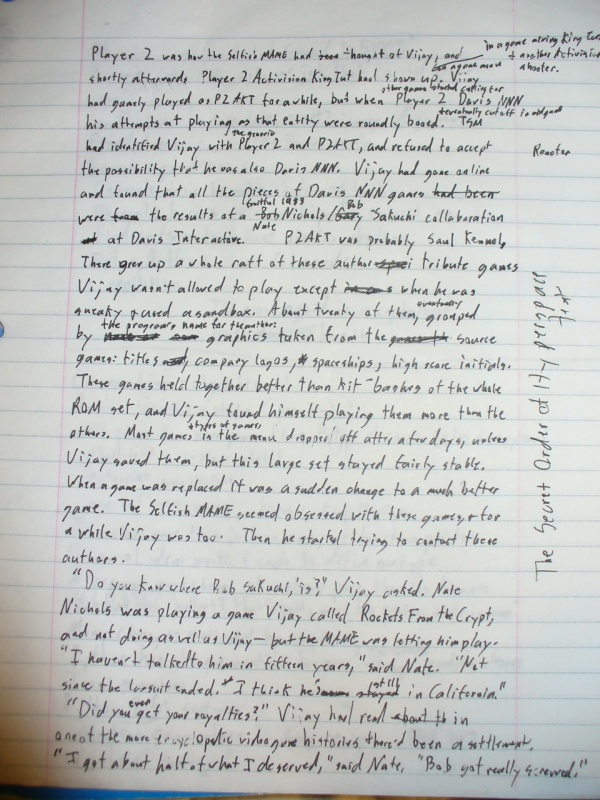 Player 2 was how the Selfish MAME had thought of Vijay, and in a game mixing King Tut
shortly afterwards Player 2 Activision King Tut had shown up. Vijay + another Activision shooter.
had gamely played as P2AKT for a while, but when other games started calling for Player 2 Davis NNN
his attempts at playing as that entity were roundly booed. + eventually cut off in midgame TSM
had identified Vijay with the generic Player 2 and P2AKT, and refused to accept
the possibility that he was also Davis NNN. Vijay had gone online
and found that all the pieces of Davis NNN games had been
were from the results of a fruitful 1983 Bob Nate Nichols/Gary Bob Sakuchi collaboration
at Davis Interactive. P2AKT was probably Saul
There grew up a whole raft of these author tribute games
Vijay wasn't allowed to play except when he was
sneaky + used a sandbox. About twenty of them, eventually grouped
by the program's name for the author: graphics taken from the source
games: titles, company logos, spaceships, high score initials.
These games held together better than kit-bashes of the whole
ROM set, and Vijay found himself playing them more than the
others. Most games + types of games in the menu dropped off after a few days, unless
Vijay saved them, but this large set stayed fairly stable.
When a game was replaced it was a sudden change to a much better
game. The Selfish MAME seemed obsessed with these games, + for
a while Vijay was too. Then he started trying to contact these
authors.
"Do you know where Bob Sakuchi is?" Vijay asked. Nate
Nichols was playing a game Vijay called Rockets From the Crypt,
and not doing as well as Vijay— but the MAME was letting him play.
"I haven't talked to him in fifteen years," said Nate. "Not
since the lawsuit ended. I think he's still in California."
"Did you even get your royalties?" Vijay had read about in
one of the more encyclopedic videogame histories there'd been a settlement.
"I got about half of what I deserved," said Nate, "Bob got really screwed."
The Secret Order of
first